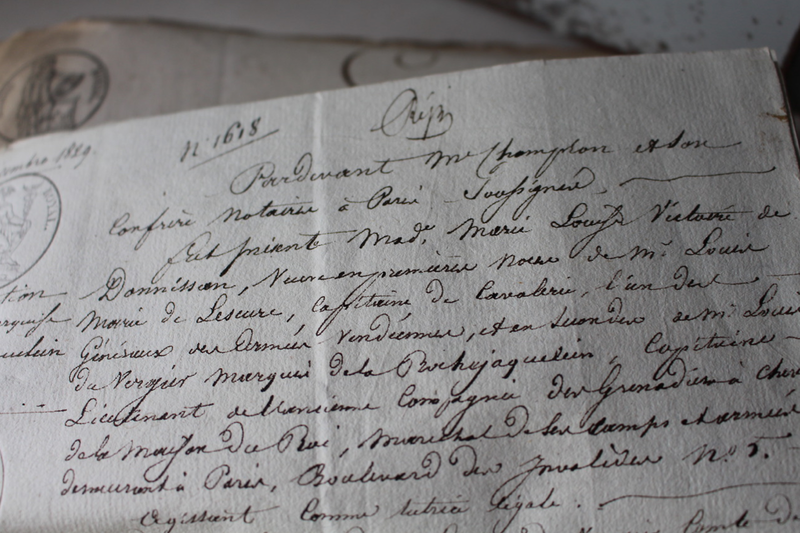 N° 1618
Répé
embre 1819.
Pardevant Me Champion et son
Confrère Notaires à Paris Soussignés
Est présente Made. Marie Louise Victoire de
Donnissan, Veuve en premières noces de Mr. Louis
Marie de Lescure, Capitaine de Cavalerie, l'un des
Généraux des Armées Vendéennes, et en secondes de Mr. Louis
du Vergier Marquis de la Rochejaquelein, Capitaine
Lieutenant de l'ancienne Compagnie des Grenadiers à Chev
de la Maison du Roi, Maréchal de ses Camps et armées
demeurant à Paris, Boulevard des Invalides N° 5.
Agissant Comme tutrice légale.
Comte de
ROYAL